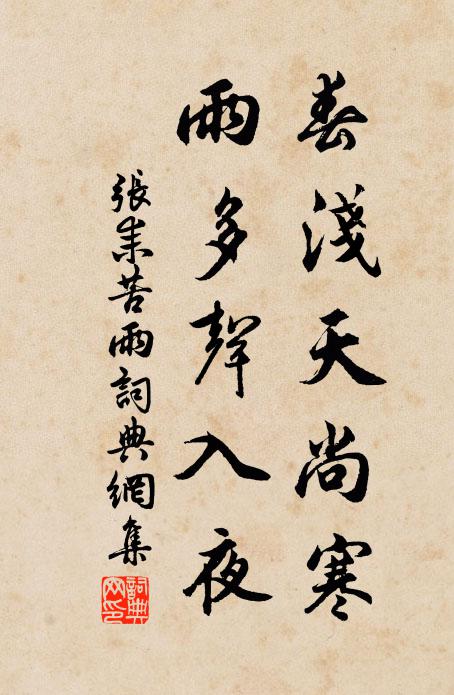 春淺天尚寒
雨多聲入夜
張耒苦雨詞典網集
詞典網印